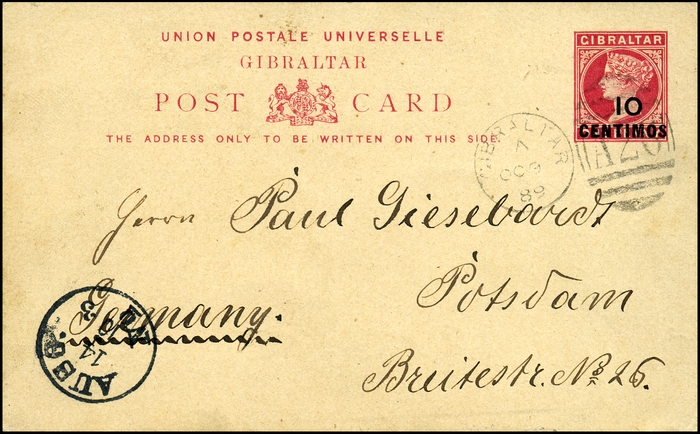 UNION POSTALE UNIVERSELLE
GIBRALTAR
POST CARD
THE ADDRESS ONLY TO BE WRITTEN ON THIS SIDE.
GIBRALTAR
10
CENTIMOS
GIBRALTAR
7
OC
89
A26
Herrn Paul Giesebardt
Potsdam
Germany.
Breitestr. No 26.
AUSG.
14